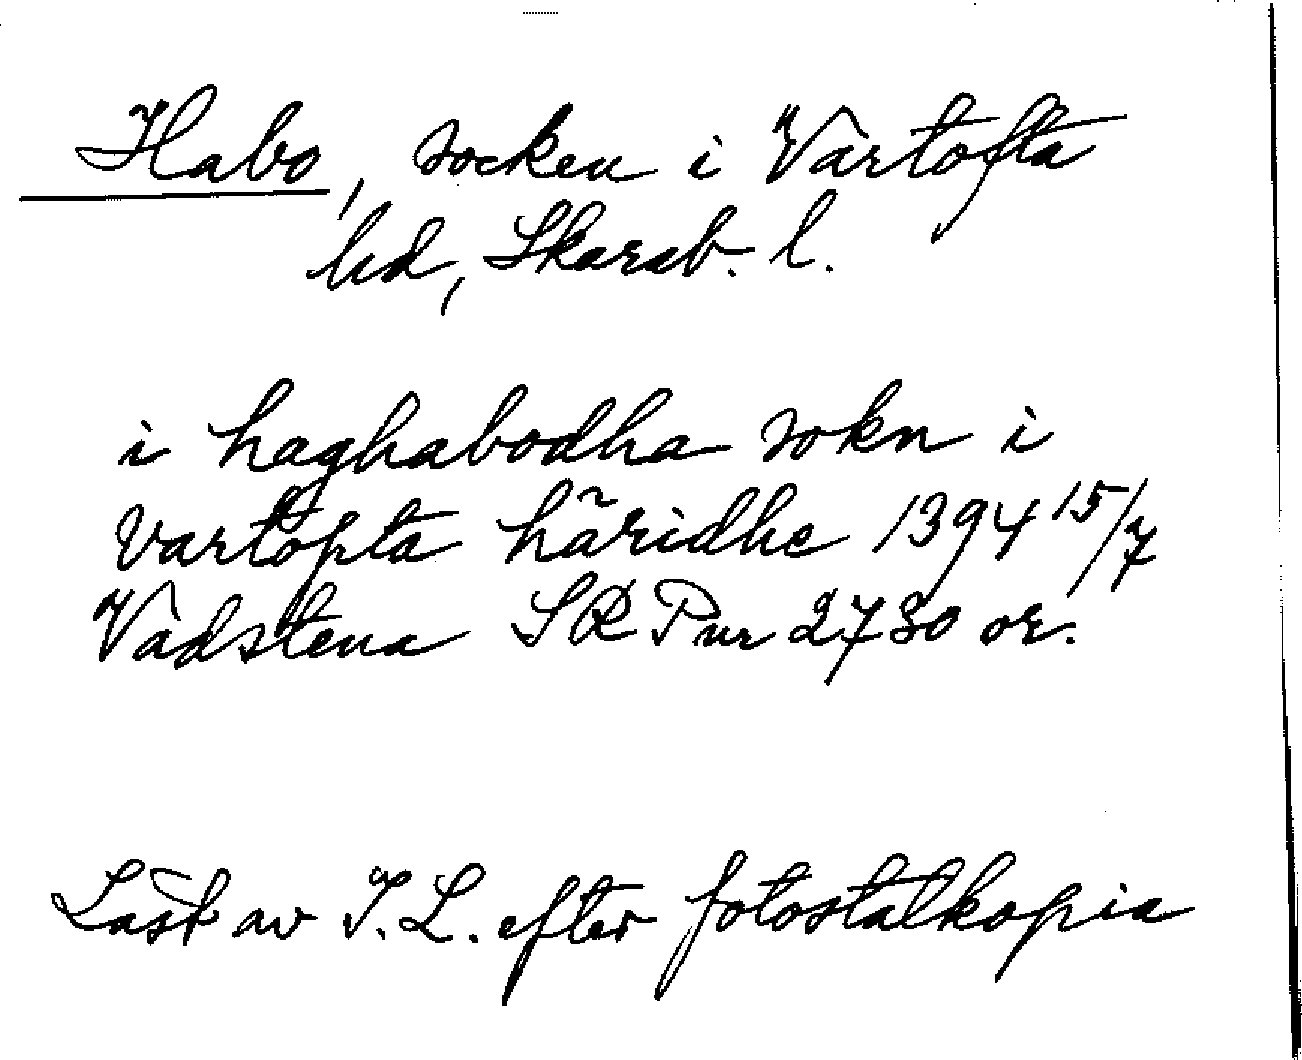 Habo, socken i Vartofta
hd, Skarab. l.
i haghabodha sokn i
vartopta häridhe 1394 15/7
Vadstena SRP nr 2730 or.
Läst av I. L. efter fotostatkopia